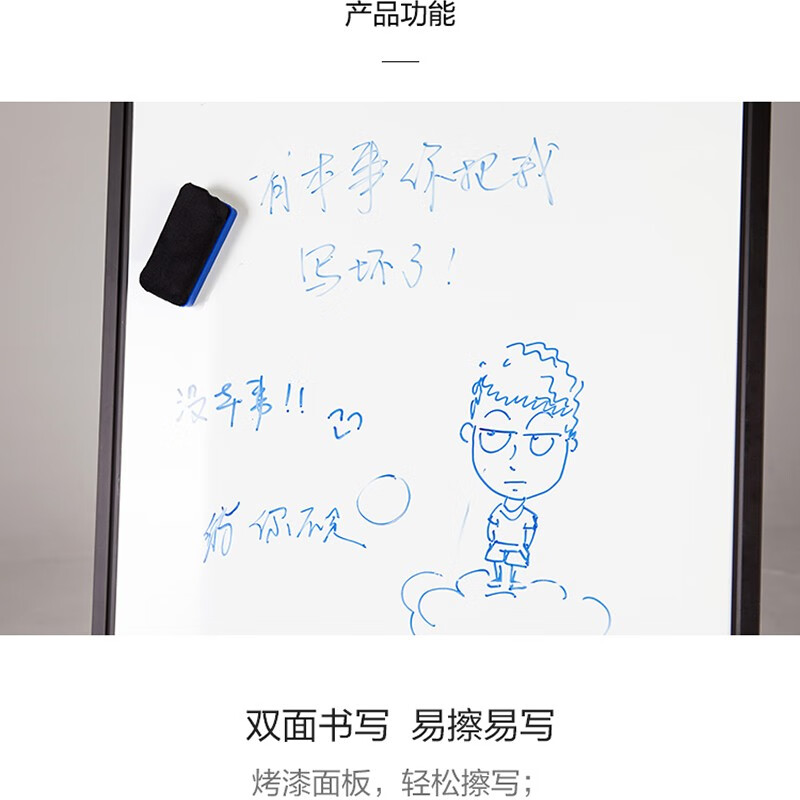 产品功能
有本事你把我
写坏了!
没本事!!
你
双面书写 易擦易写
烤漆面板，轻松擦写；